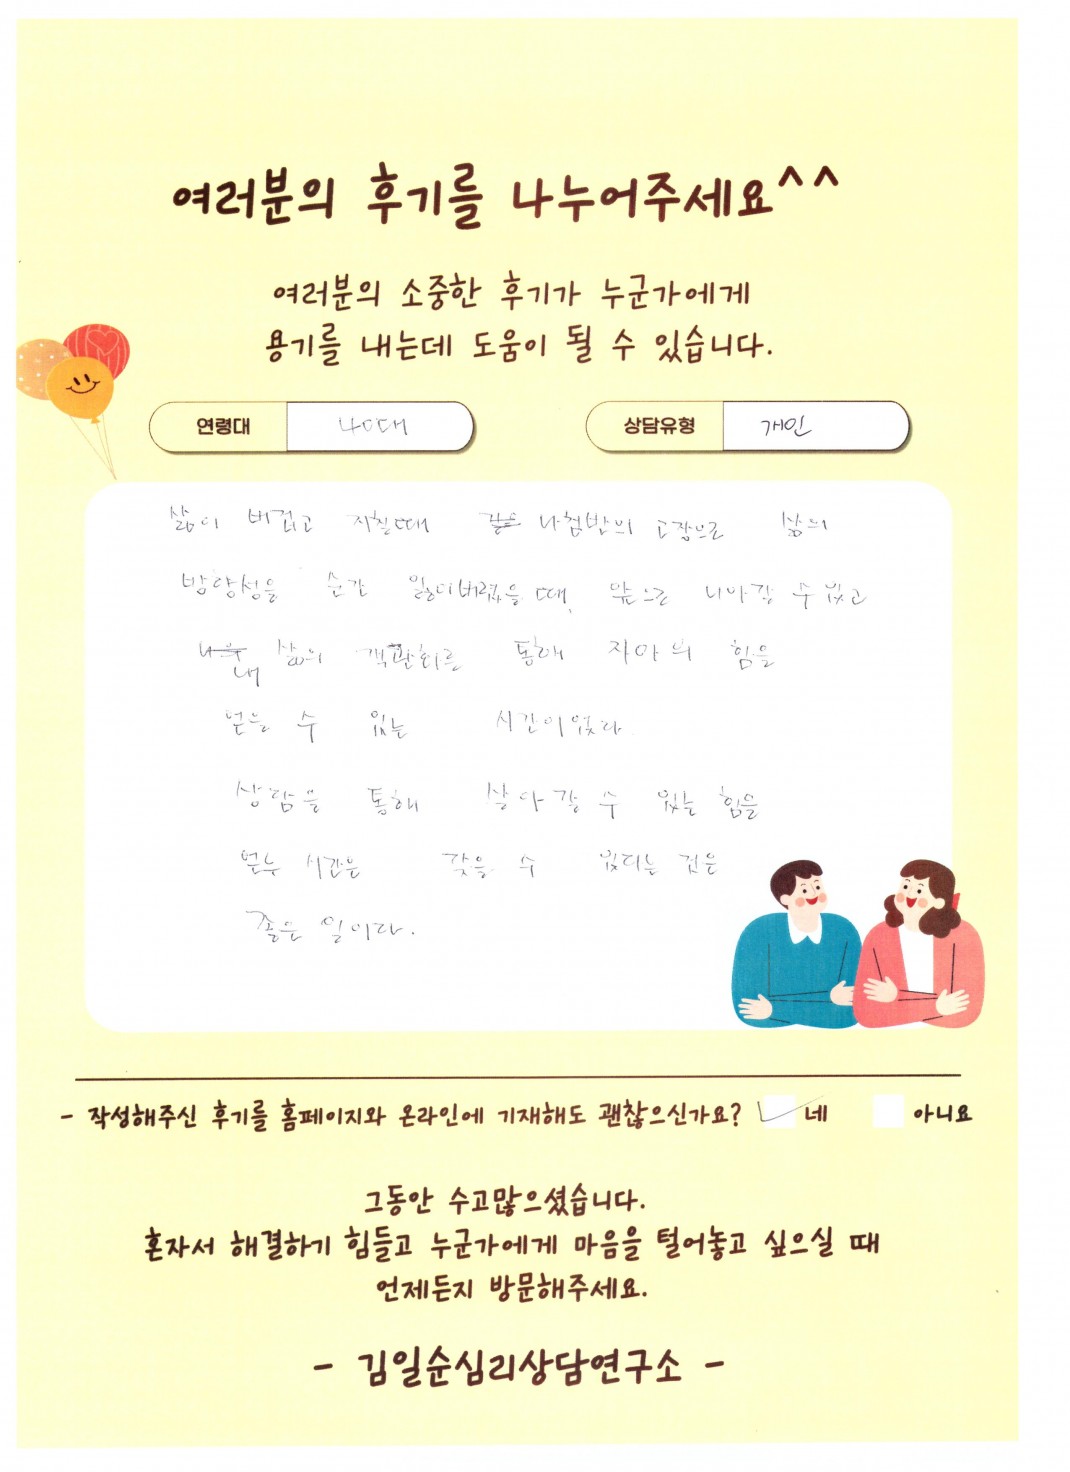 여러분의 후기를 나누어주세요^^
여러분의 소중한 후기가 누군가에게
용기를 내는데 도움이 될 수 있습니다.
연령대 40대 상담유형 개인
삶이 버겁고 지칠때 나침반의 고장으로 삶의
방향성을 순간 잃어버렸을 때, 앞으로 나아갈 수 있고
내 삶의 객관화를 통해 자아의 힘을
얻을 수 있는 시간이었다.
상담을 통해 살아갈 수 있는 힘을
얻는 시간을 갖을 수 있다는 것은
좋은 일이다.
- 작성해주신 후기를 홈페이지와 온라인에 기재해도 괜찮으신가요? 네 아니요
그동안 수고많으셨습니다.
혼자서 해결하기 힘들고 누군가에게 마음을 털어놓고 싶으실 때
언제든지 방문해주세요.
- 김일순심리상담연구소 -